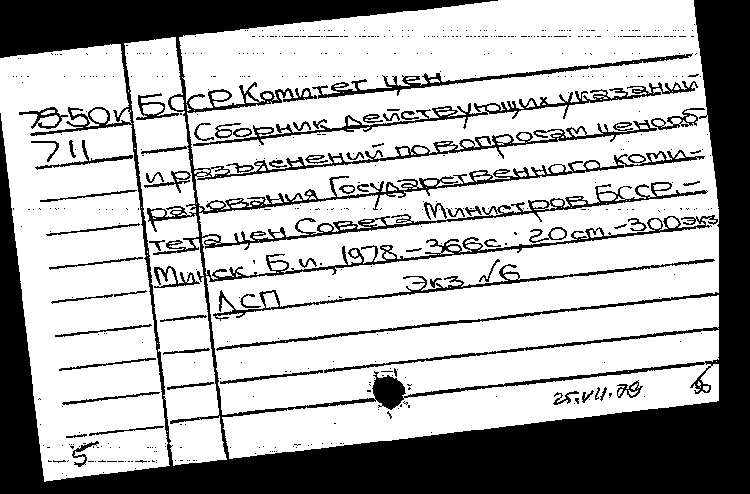 БССР Комитет цен
Сборник действующих указаний
711
и разъяснений по вопросам ценооб-
разования Государственного коми-
тета цен Совета Министров БССР. –
Минск: Б.и., 1978. – 366 с.; 20 см. – 300 экз
ДСП Экз. №6
25.VII.79
5